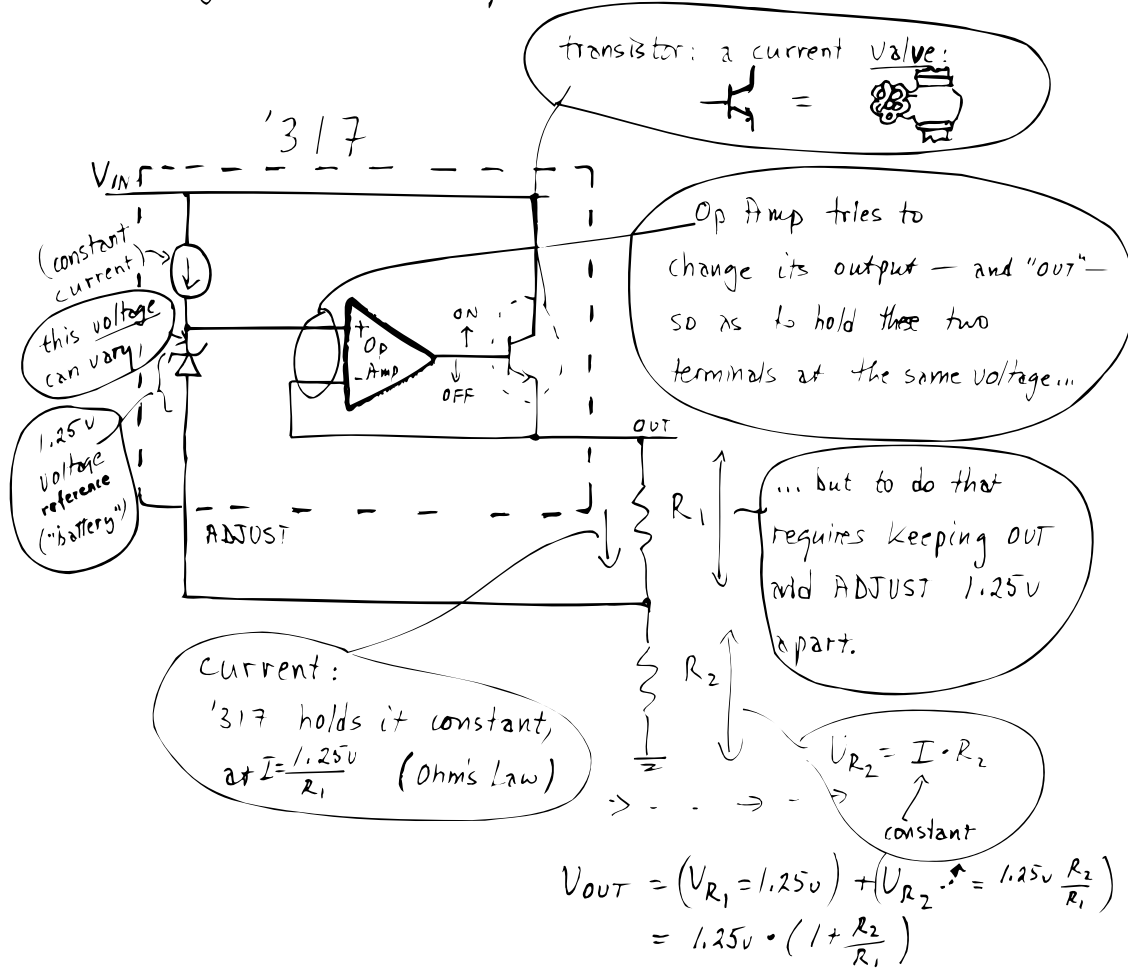 transistor: a current valve:
=
'317
VIN
(constant
current)
this voltage
can vary
1.25v
voltage
reference
("battery")
+
Op
Amp
-
ON
OFF
Op Amp tries to
change its output — and "OUT" —
so as to hold these two
terminals at the same voltage...
OUT
ADJUST
R1
... but to do that
requires keeping OUT
and ADJUST 1.25v
apart.
R2
current:
'317 holds it constant,
at I = 1.25v / R1 (Ohm's Law)
VR2 = I · R2
constant
VOUT = (VR1 = 1.25v) + (VR2 = 1.25v R2/R1)
= 1.25v · (1 + R2/R1)